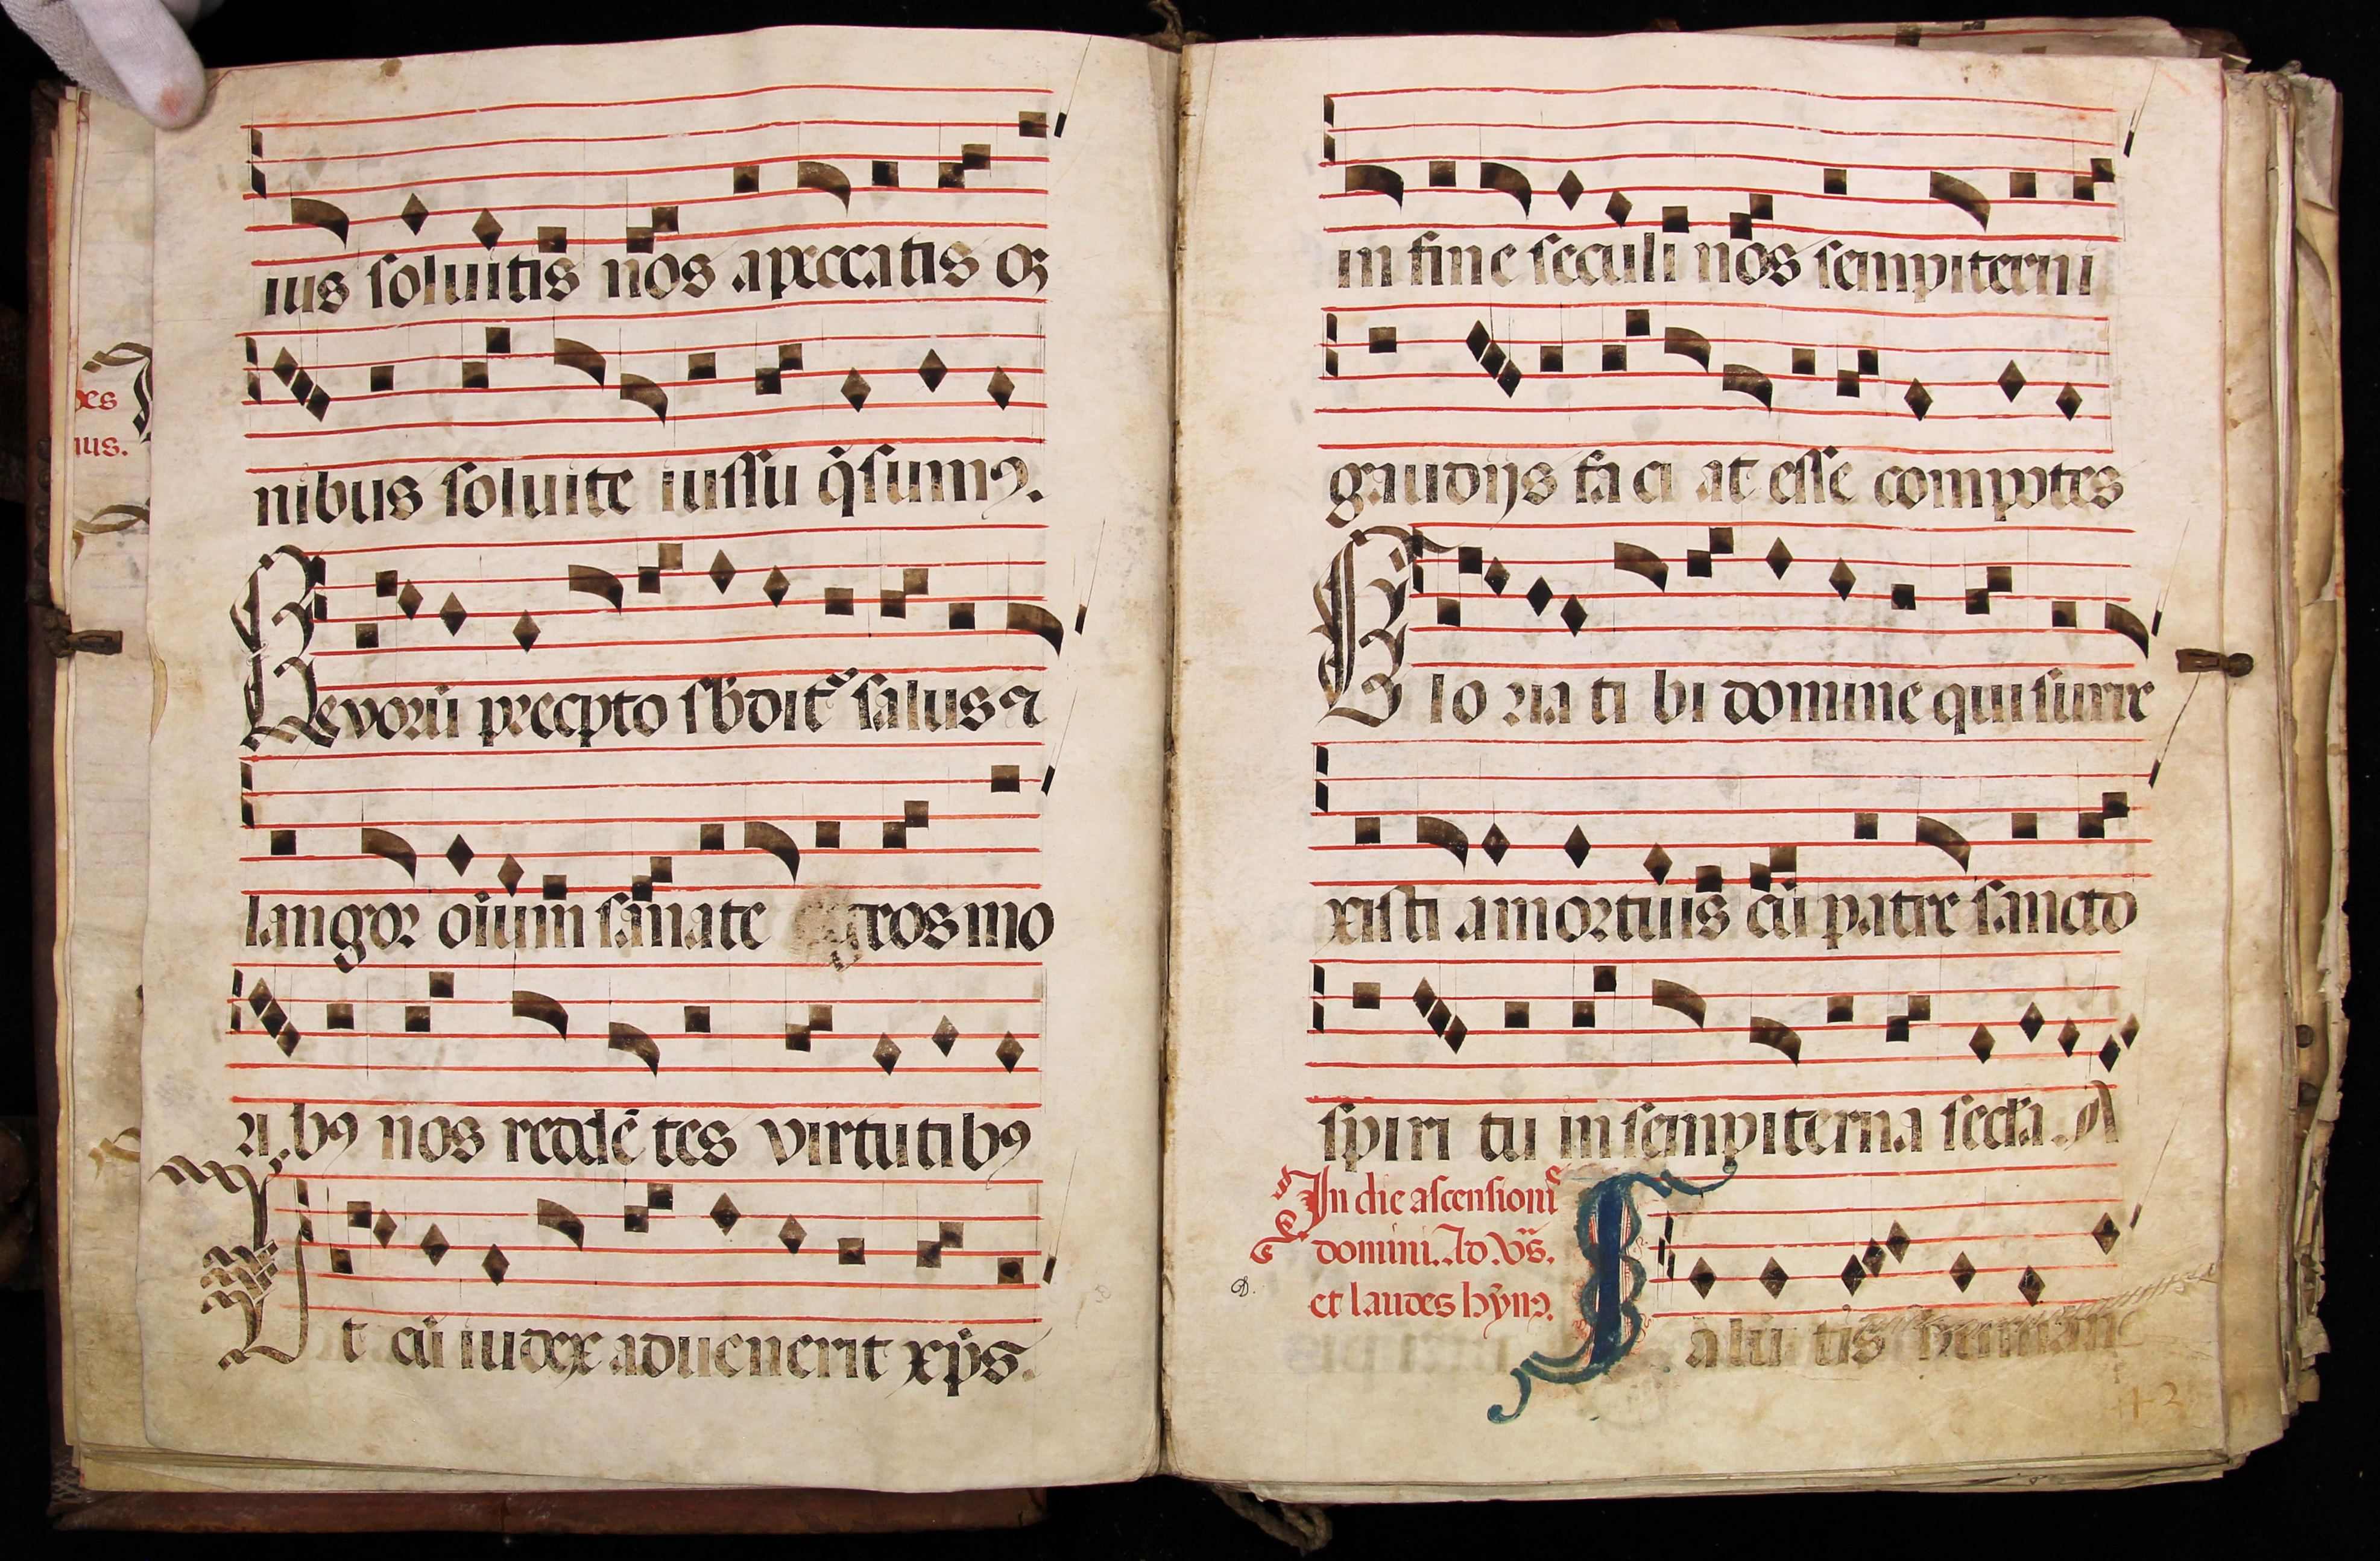 des
nus.
ius soluitis nos a peccatis oꝫ
nibus soluite iussu q̄sumꝰ.
Quorū precepto sbditᷣ salus ⁊
langor oīum sanate egros mo
ribꝰ nos reddētes virtutibꝰ
Ut cū iudex aduenerit xp̄s.
in fine seculi nos sempiterni
gaudijs faciat esse compotes
Gloria tibi domine qui surre
xisti a mortuis cū patre sancto
spiritu in sempiterna secła. A
In die ascensionis
domini. Ad v̄s.
et laudes hȳnꝰ.
D.
Ialutis humane
42